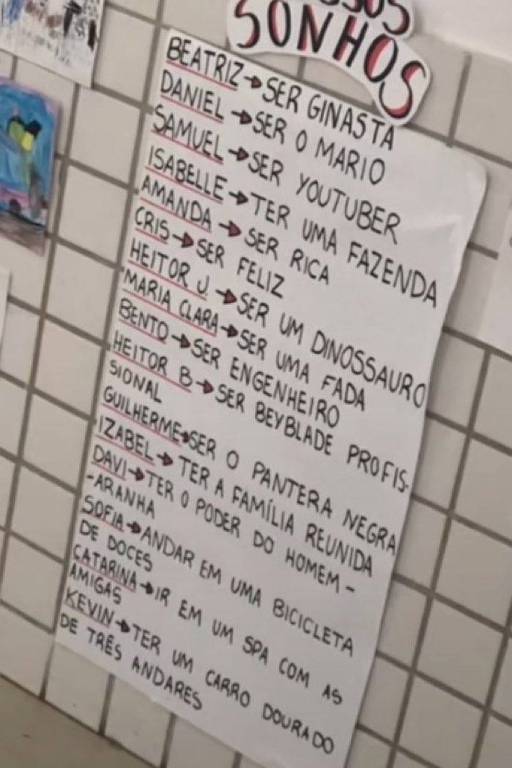 SONHOS
BEATRIZ → SER GINASTA
DANIEL → SER O MARIO
SAMUEL → SER YOUTUBER
ISABELLE → TER UMA FAZENDA
AMANDA → SER RICA
CRIS → SER FELIZ
HEITOR J. → SER UM DINOSSAURO
MARIA CLARA → SER UMA FADA
BENTO → SER ENGENHEIRO
HEITOR B → SER BEYBLADE PROFIS-
SIONAL
GUILHERME → SER O PANTERA NEGRA
IZABEL → TER A FAMÍLIA REUNIDA
DAVI → TER O PODER DO HOMEM-
-ARANHA
SOFIA → ANDAR EM UMA BICICLETA
DE DOCES
CATARINA → IR EM UM SPA COM AS
AMIGAS
KEVIN → TER UM CARRO DOURADO
DE TRÊS ANDARES